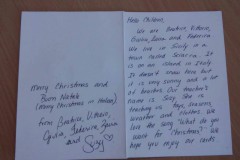 Merry Christmas and
Buon Natale
(Merry Christmas in Italian)
from Beatrice, Vittoria,
Giulia,
and Suzy
Hello Children,
We are Beatrice, Vittoria,
Giulia,
We live in Sicily in a
town called
is an island in Italy.
It doesn't snow here but
it is very sunny and a lot
of beaches. Our teacher's
name is Suzy. She is
teaching us toys, seasons,
weather and clothes. We
love the song "What do you
want for Christmas?" We
hope you enjoy our cards.